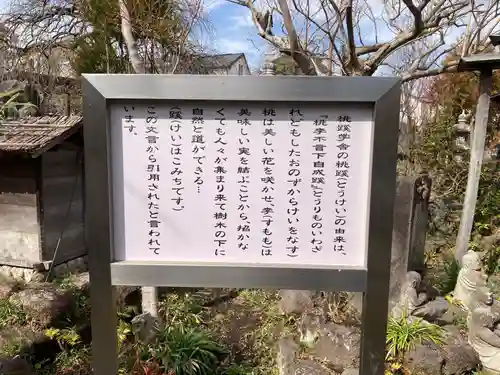 桃蹊学舎の桃蹊(とうけい)の由来は、
『桃李不言下自成蹊』とうりものいわざ
れどもしたおのずからけいをなす
桃は美しい花を咲かせ、李(すもも)は
美味しい実を結ぶことから、招かな
くても人々が集まり来て樹木の下に
自然と道ができる…
(蹊(けい)はこみちです。)
この文言から引用されたと言われて
います。